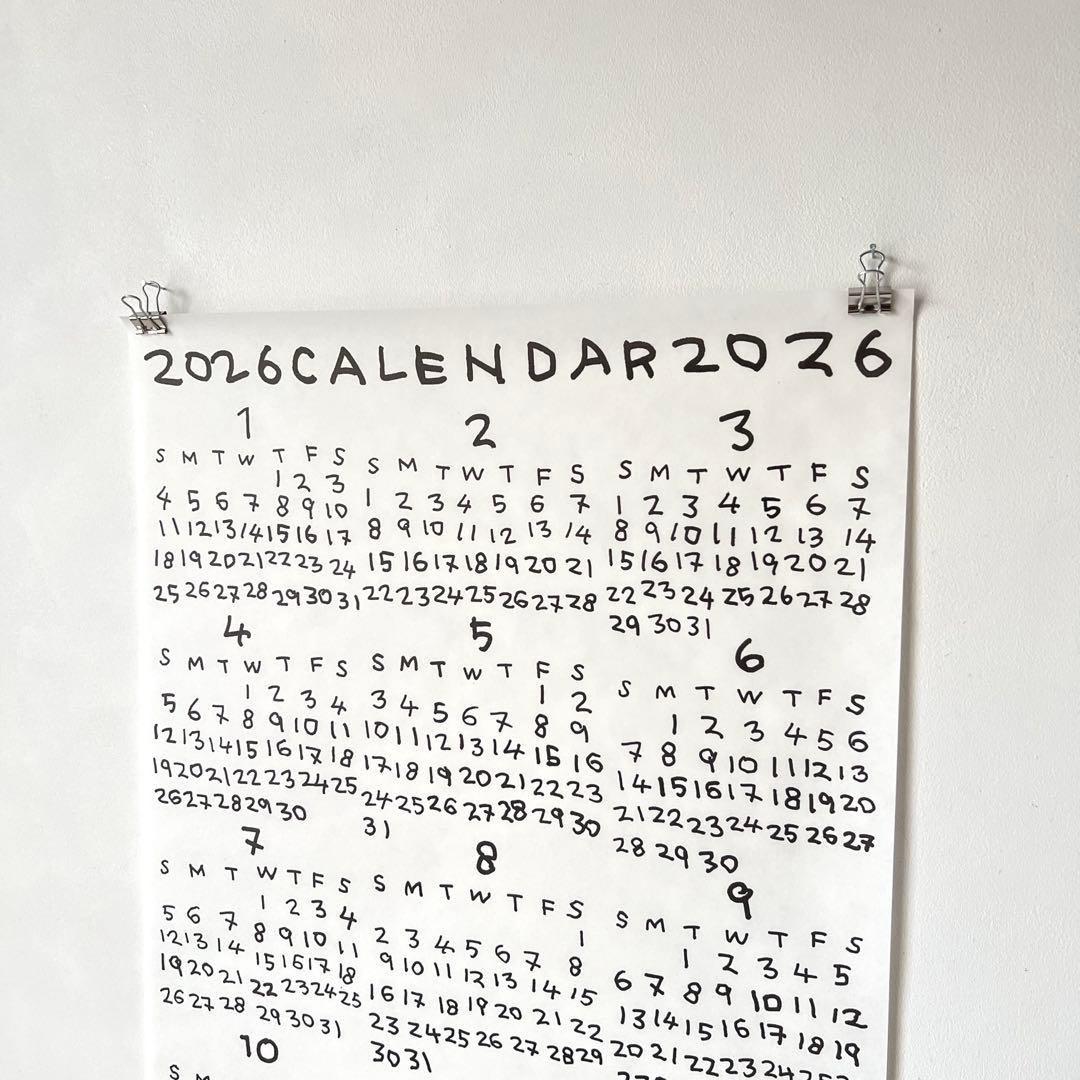 2026 CALENDAR 2026
1
S M T W T F S
1 2 3
4 5 6 7 8 9 10
11 12 13 14 15 16 17
18 19 20 21 22 23 24
25 26 27 28 29 30 31
2
S M T W T F S
1 2 3 4 5 6 7
8 9 10 11 12 13 14
15 16 17 18 19 20 21
22 23 24 25 26 27 28
3
S M T W T F S
1 2 3 4 5 6 7
8 9 10 11 12 13 14
15 16 17 18 19 20 21
22 23 24 25 26 27 28
29 30 31
4
S M T W T F S
1 2 3 4
5 6 7 8 9 10 11
12 13 14 15 16 17 18
19 20 21 22 23 24 25
26 27 28 29 30
5
S M T W T F S
1 2
3 4 5 6 7 8 9
10 11 12 13 14 15 16
17 18 19 20 21 22 23
24 25 26 27 28 29 30
31
6
S M T W T F S
1 2 3 4 5 6
7 8 9 10 11 12 13
14 15 16 17 18 19 20
21 22 23 24 25 26 27
28 29 30
7
S M T W T F S
1 2 3 4
5 6 7 8 9 10 11
12 13 14 15 16 17 18
19 20 21 22 23 24 25
26 27 28 29 30 31
8
S M T W T F S
1
2 3 4 5 6 7 8
9 10 11 12 13 14 15
16 17 18 19 20 21 22
23 24 25 26 27 28 29
30 31
9
S M T W T F S
1 2 3 4 5
6 7 8 9 10 11 12
13 14 15 16 17 18 19
20 21 22 23 24 25
10
S M